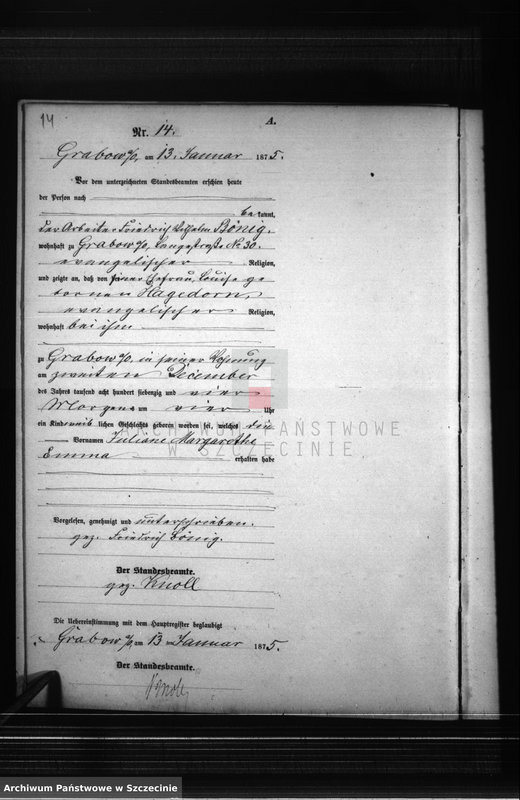 14
A.
Nr. 14.
Grabow a/O, am 13. Januar 1875.
Vor dem unterzeichneten Standesbeamten erschien heute
der Person nach
bekannt,
der Arbeiter Friedrich Wilhelm Bönig,
wohnhaft zu Grabow a/O, Langestraße No 30.
evangelischer Religion,
und zeigte an, daß von seiner Ehefrau, Louise ge
bornen Hagedorn,
evangelischer Religion,
wohnhaft bei ihm
zu Grabow a/O. in seiner Wohnung
am zweiten December
des Jahres tausend acht hundert siebenzig und vier
Morgens um vier Uhr
ein Kind weiblichen Geschlechts geboren worden sei, welches die
Vornamen Juliane Margarethe
Emma erhalten habe
Vorgelesen, genehmigt und unterschrieben.
gez. Friedrich Bönig.
Der Standesbeamte.
gez. Knoll
Die Uebereinstimmung mit dem Hauptregister beglaubigt
Grabow a/O, am 13 ten Januar 1875.
Der Standesbeamte.
Knoll
ARCHIWUM PAŃSTWOWE
W SZCZECINIE
Archiwum Państwowe w Szczecinie